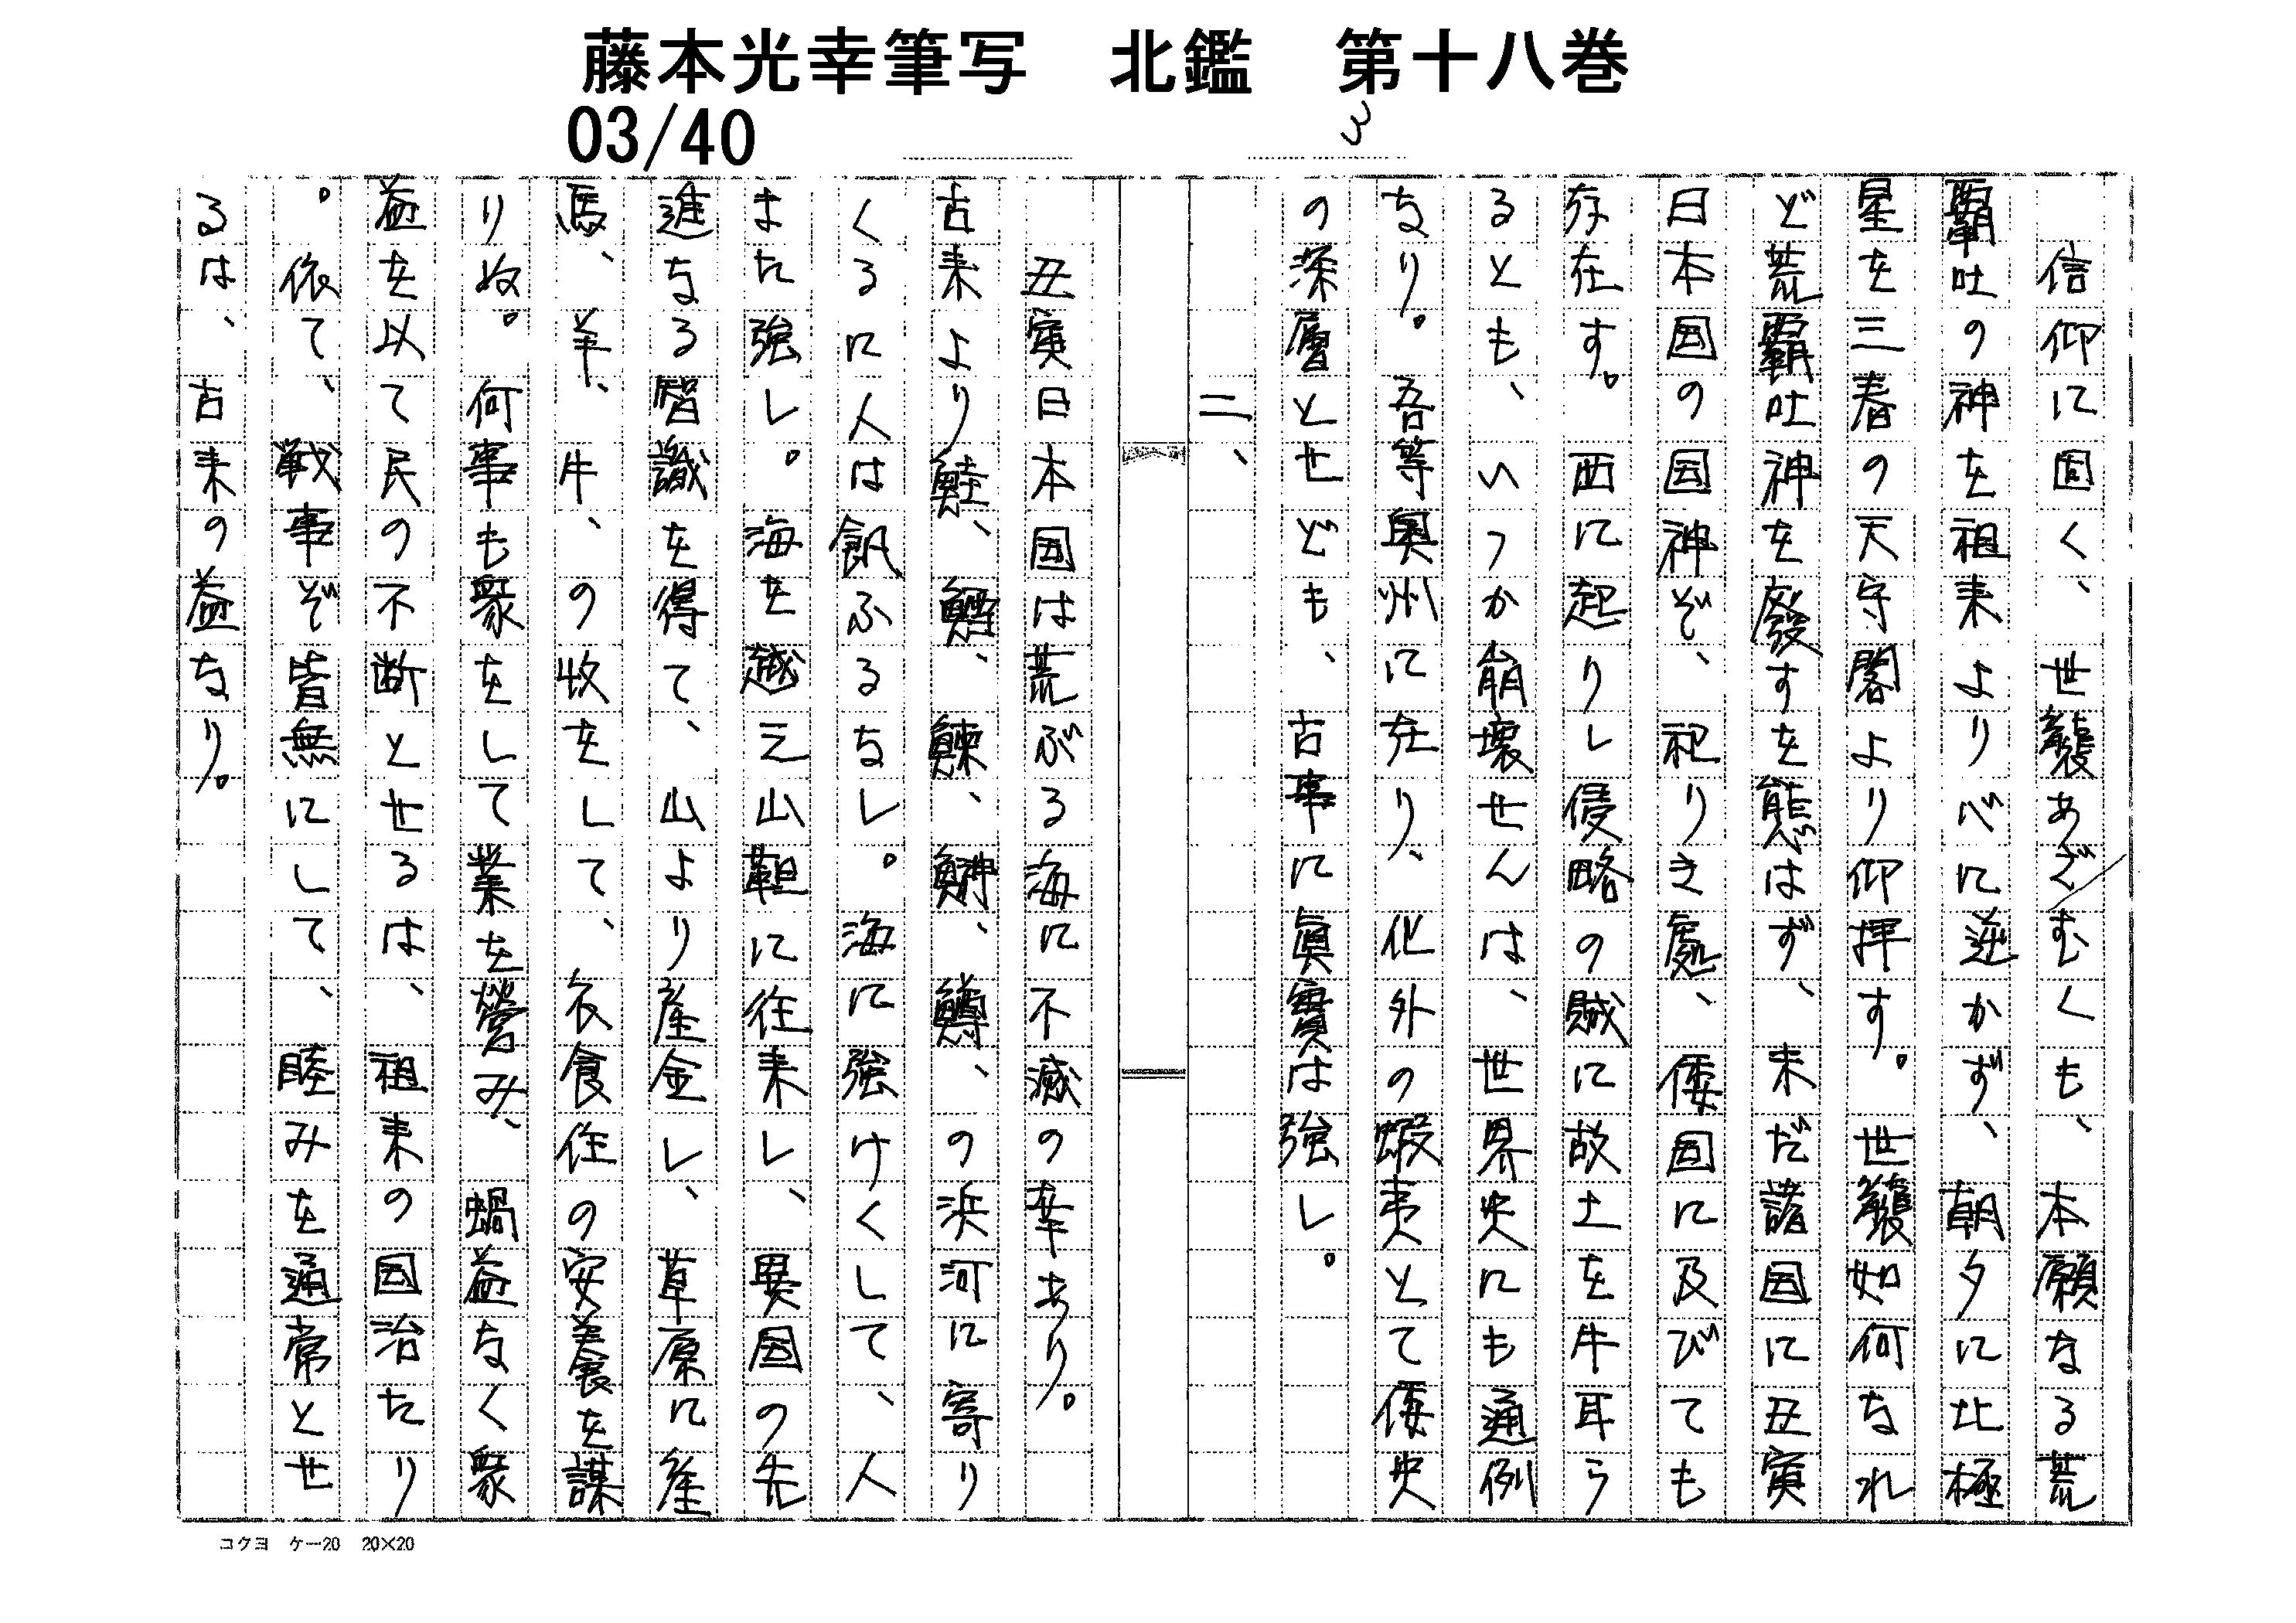 藤本光幸筆写　北鑑　第十八巻
03/40
3
信仰に固く、世襲あざむくも、本願なる荒
覇吐の神を祖来より心に逆かず、朝夕に北極
星を三春の天守閣より仰拝す。世襲如何なれ
ど荒覇吐神を廢すを態はず、未だ諸国に丑寅
日本国の国神ぞ、祀りき處、倭国に及びても
存在す。西に起りし侵略の賊に故土を牛耳ら
るとも、いつか崩壊せんは、世界史にも通例
なり。吾等奥州に在り、化外の蝦夷とて倭史
の深層と世ども、古事に眞實は強し。
二、
丑寅日本国は荒ぶる海に不滅の幸あり。
古来より鮭、鱈、鰊、鰰、鱒、の浜河に寄り
くるに人は飢ふるなし。海に強けくして、人
また強し。海を越え山靼に往来し、異国の先
進なる智識を得て、山より産金し、草原に産
馬、羊、牛、の牧をして、衣食住の安養を謀
りぬ。何事も衆をして業を營み、蝸益なく衆
益を以て民の不断とせるは、祖来の国治たり
。依て、戦事ぞ皆無にして、睦みを通常とせ
るは、古来の益なり。
コクヨ　ケー20　20×20